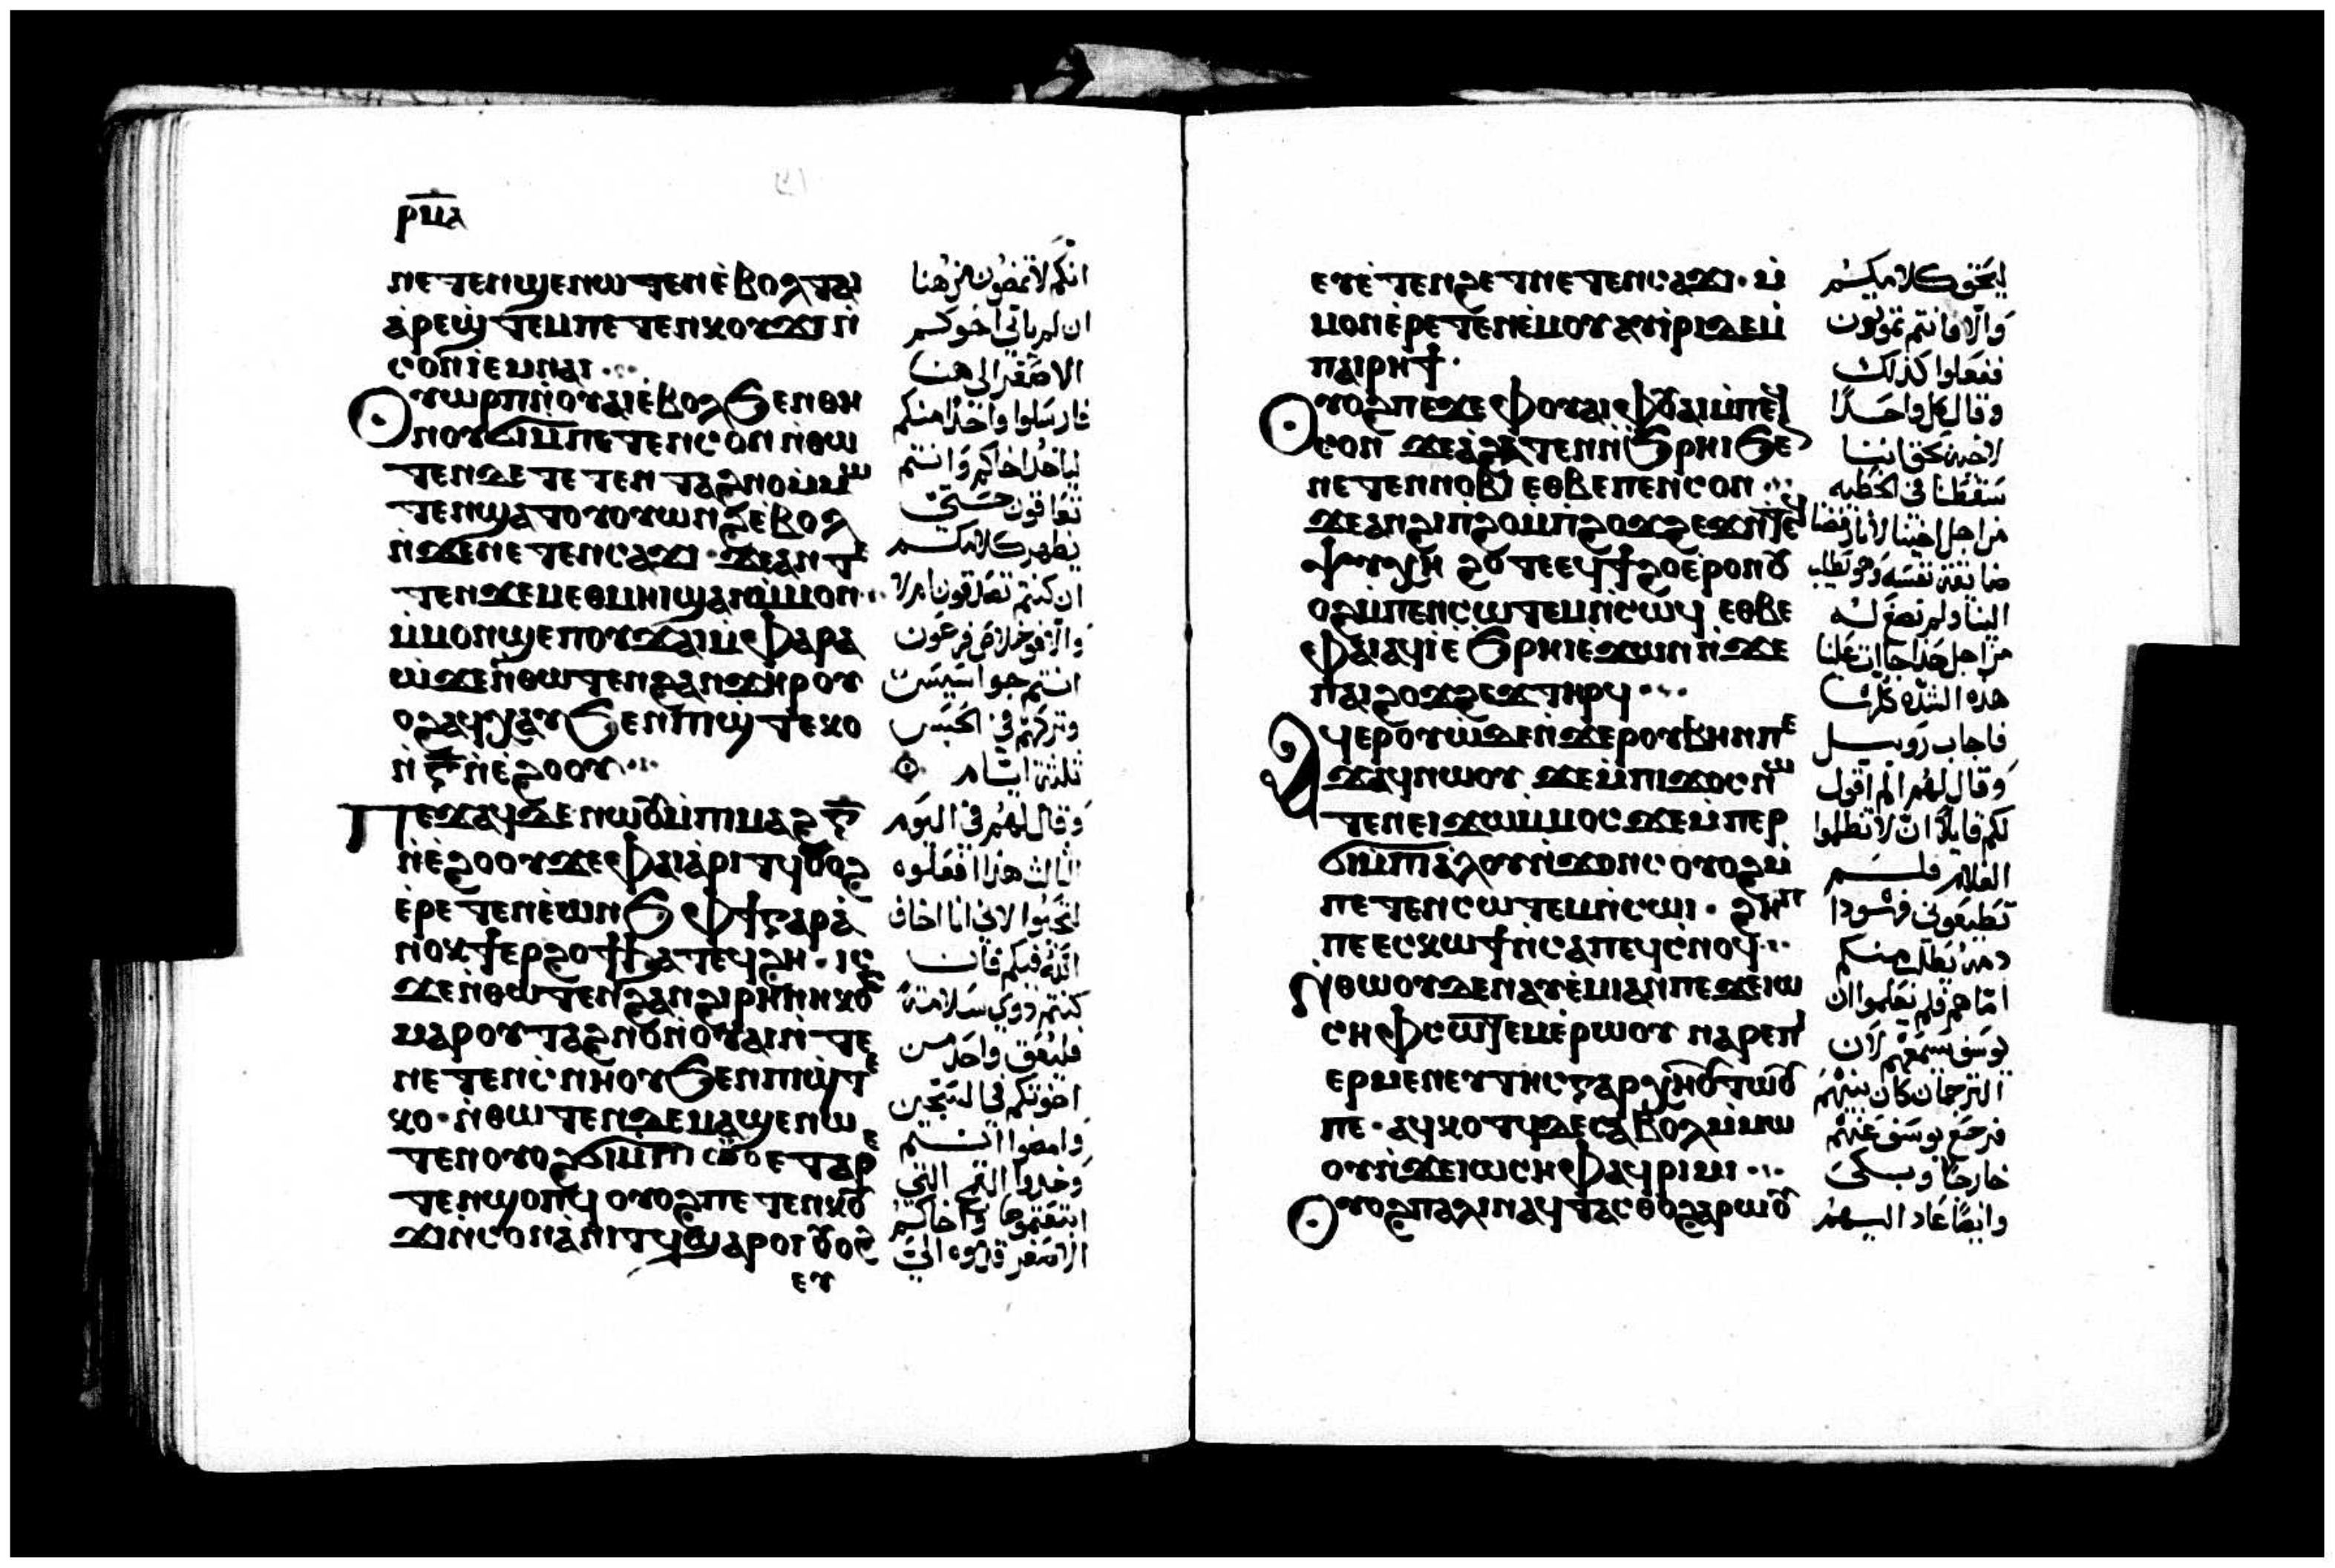 ⲣⲙⲁ
ⲛⲉⲧⲉⲛϣⲉⲛⲱⲧⲉⲛⲉ̀ⲃⲟⲗⲧⲁⲓ
ⲁ̀ⲣⲉϣ̀ⲧⲉⲙⲡⲉⲧⲉⲛⲕⲟⲩϫⲓⲛ̀
ⲥⲟⲛⲓ̀ⲉⲙⲛⲁⲓ
ⲟⲩⲱⲣⲡⲛ̀ⲟⲩⲁⲓⲉⲃⲟⲗϧⲉⲛⲑⲏ
ⲛⲟⲩϭⲓⲙ̀ⲡⲉⲧⲉⲛⲥⲟⲛ ⲛ̀ⲑⲱ
ⲧⲉⲛⲇⲉⲧⲉⲧⲉⲛ ⲧⲁϩⲛⲟⲙ̀ⲙⲱ
ⲧⲉⲛϣⲁⲧⲟⲩⲟⲩⲱⲛϩⲉ̀ⲃⲟⲗ
ⲛ̀ϫⲉⲛⲉⲧⲉⲛⲥⲁϫⲓ ϫⲉⲁⲛⲧⲉ
ⲧⲉⲛϫⲉⲙⲉⲑⲙⲏⲓϣⲁⲛⲙ̀ⲙⲟⲛ
ⲙ̀ⲙⲟⲛϣⲉⲡⲟⲩϫⲁⲓⲙ̀ⲫⲁⲣⲁ
ⲱ̀ϫⲉⲛ̀ⲑⲱⲧⲉⲛϩⲁⲛϫⲏⲣⲟⲩ
ⲟϩⲁϥⲭⲁⲩϧⲉⲛⲡⲓϣ̀ⲧⲉⲕⲟ
ⲛ̀ⲅ̅ⲛ̀ⲉ̀ϩⲟⲟⲩ
ⲡⲉϫⲁϥⲇⲉⲛⲱⲟⲩⲙ̀ⲡⲓⲙⲁϩⲅ̅
ⲛ̀ⲉ̀ϩⲟⲟⲩϫⲉⲫⲁⲓⲁ̀ⲣⲓⲧϥⲟⲩⲟϩ
ⲉ̀ⲣⲉⲧⲉⲛⲉ̀ⲱⲛϧ ⲫϯⲅⲁⲣⲁ̀
ⲛⲟⲕϯⲉⲣϩⲟϯϧⲁⲧⲉϥϩⲏ ⲓⲥ
ϫⲉⲛ̀ⲑⲱⲧⲉⲛϩⲁⲛϩⲓⲣⲏⲛⲓⲕⲟⲥ
ⲙⲁⲣⲟⲩⲧⲁϩⲛⲟⲛ̀ⲟⲩⲁⲓⲛ̀ⲧⲉ
ⲛⲉⲧⲉⲛⲥ̀ⲛⲏⲟⲩϧⲉⲛⲡⲓϣ̀ⲧⲉ
ⲕⲟ ⲛ̀ⲑⲱⲧⲉⲛⲇⲉⲙⲁϣⲉⲛⲱ
ⲧⲉⲛⲟⲩⲟϩϭⲓⲙ̀ⲡⲓⲥⲟⲩⲟⲉⲧⲁⲣⲉ
ⲧⲉⲛϣⲟⲡϥ ⲟⲩⲟϩⲡⲉⲧⲉⲛⲕⲟⲩ
ϫⲓⲛ̀ⲥⲟⲛⲁ̀ⲛⲓⲧϥϣⲁⲣⲟⲓ ⲟⲩⲟϩ
ⲉⲩ
انكم لا تمضون من هنا
ان لم ياتى اخوكم
الاصغر الى هنا
فارسلوا واحدًا منكم
لياخذ اخاكم وانتم
تعاقون حتى
يظهر كلامكم
ان كنتم تصدقون ام لا
والا فوخلاص فرعون
انتم جواسيس
وتركهم فى الحبس
ثلثة ايام
وقال لهم فى اليوم
الثالث هذا افعلوه
لتحيوا لانى انا اخاف
الله فيكم فان
كنتم ذوى سلامة
فليعق واحد من
اخوتكم فى السجن
وامضوا انتم
وخذوا القمح التى
ابتعتموها واخاكم
الاصغر قدموه الىّ
ⲉⲩⲉ̀ⲧⲉⲛϩⲉⲧⲛⲉⲧⲉⲛⲥⲁϫⲓ ⲙ̀
ⲙⲟⲛⲉ̀ⲣⲉⲧⲉⲛⲉ̀ⲙⲟⲩⲁⲩⲓ̀ⲣⲓⲇⲉⲙ̀
ⲡⲁⲓⲣⲏϯ
ⲟⲩⲟϩⲡⲉϫⲉⲫⲟⲩⲁⲓⲫⲟⲩⲁⲓⲙ̀ⲡⲉϥ
ⲥⲟⲛ ϫⲉⲁ̀ϩⲁⲧⲉⲛⲛ̀ϧⲣⲏⲓϧⲉⲛ
ⲛⲉⲧⲉⲛⲛⲟⲃⲓ ⲉⲑⲃⲉⲡⲉⲛⲥⲟⲛ
ϫⲉⲁⲛϩⲓⲡϩⲟⲙ̀ⲡϩⲟϫϩⲉϫⲛ̀ⲧⲉϥ
ϯⲯⲩⲭⲏ ϩⲟⲧⲉⲉϥϯϩⲟⲉ̀ⲣⲟⲛⲟⲩ
ⲟϩⲙ̀ⲡⲉⲛⲥⲱⲧⲉⲙⲛ̀ⲥⲱϥ ⲉⲑⲃⲉ
ⲫⲁⲓⲁϥⲓ̀ⲉ̀ϧⲣⲏⲓⲉ̀ϫⲱⲛ ⲛ̀ϫⲉ
ⲡⲁⲓϩⲟϫϩⲉϫⲧⲏⲣϥ
ⲁϥⲉⲣⲟⲩⲱ̀ⲇⲉⲛ̀ϫⲉⲣⲟⲩⲃⲏⲛⲡⲉ
ϫⲁϥⲛⲱⲟⲩ ϫⲉⲙ̀ⲡⲓϫⲟⲥⲛⲱ
ⲧⲉⲛⲉⲓϫⲱⲙ̀ⲙⲟⲥϫⲉⲙ̀ⲡⲉⲣ
ϭⲓⲙ̀ⲡⲓⲁ̀ⲗⲟⲩⲛ̀ϫⲟⲛⲥⲟⲩⲟϩⲙ̀
ⲡⲉⲧⲉⲛⲥⲱⲧⲉⲙⲛ̀ⲥⲱⲓ ϩⲏⲡ
ⲡⲉⲉⲥⲕⲱϯⲛ̀ⲥⲁⲡⲉϥⲥ̀ⲛⲟϥ
ⲛ̀ⲑⲱⲟⲩⲇⲉⲛⲁⲩⲉ̀ⲙⲓⲁⲛⲡⲉϫⲉⲓⲱ
ⲥⲏⲫⲥⲱⲧⲉⲙⲉ̀ⲣⲱⲟⲩ ⲛⲁⲣⲉⲡⲓ
ⲉⲣⲙⲉⲛⲉⲩⲧⲏⲥⲅⲁⲣⲭⲏⲟⲩⲧⲱⲟⲩ
ⲡⲉ ⲁϥⲕⲟⲧϥⲇⲉⲥⲁⲃⲟⲗⲙ̀ⲙⲱ
ⲟⲩⲛ̀ϫⲉⲓⲱⲥⲏⲫⲁϥⲣⲓⲙⲓ
ⲟⲩⲟϩⲡⲁⲗⲓⲛⲁϥⲧⲁⲥⲑⲟϩⲁⲣⲱⲟⲩ
ليحقق كلامكم
والا فانتم تموتون
ففعلوا كذلك
وقال كل واحدًا
لاخيه بحق اننا
سقطنا فى الخطيه
من اجل اخينا لاننا رفضنا
ضايقة نفسه وهو يطلب
الينا ولم نصغ له
من اجل هذا جات علينا
هذه الشده كلها
فاجاب روبيل
وقال لهم الم اقول
لكم قايلا ان لا تظلموا
الغلام فلم
تطيعونى فهوذا
دمه يطلب منكم
اما هم فلم يعلموا ان
يوسف يسمعهم لان
الترجمان كان بينهم
فرجع يوسف عنهم
خارجًا وبكى
وايضا عاد اليهم